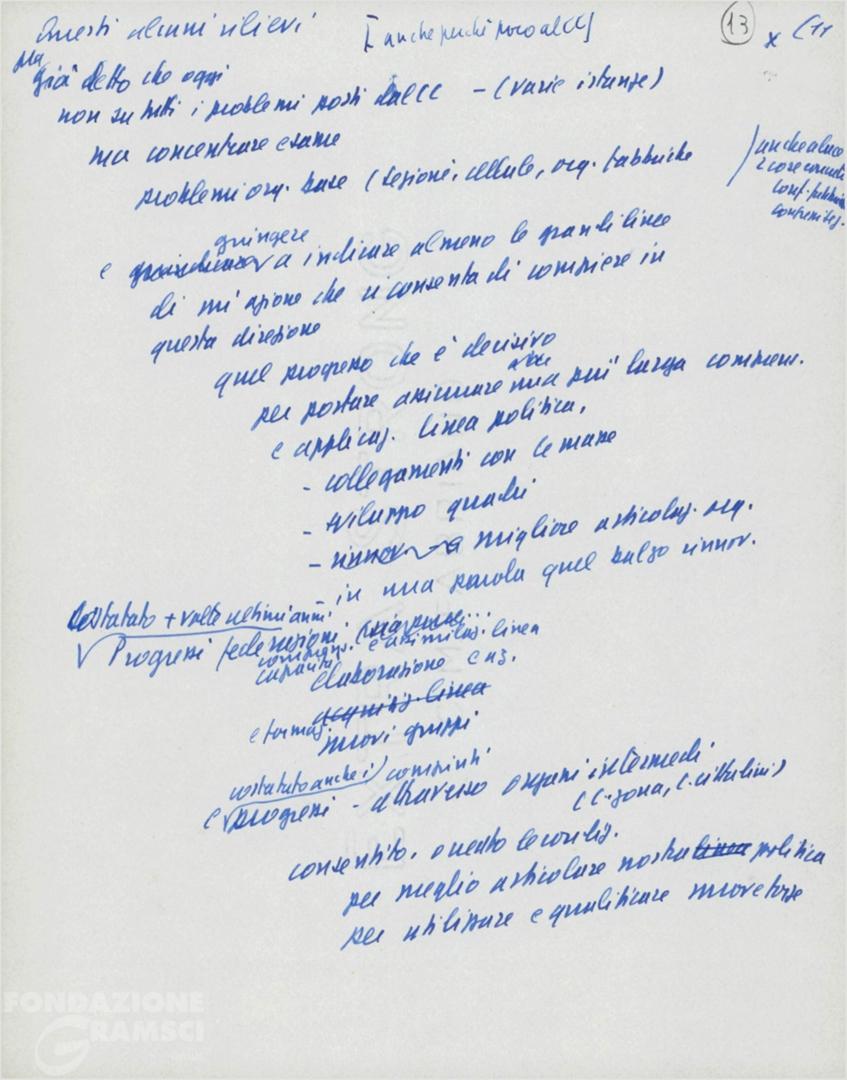 Questi alcuni rilievi [anche perché poco al CC]
13 x
Ma
già detto che oggi
non su tutti i problemi posti dal CC - (varie istanze)
ma concentrare esame
problemi org. base (sezioni, cellule, org. fabbriche
anche a luce
conf. fabbriche
e giungere a indicare almeno le grandi linee
di un'azione che ci consenta di compiere in
questa direzione
quel progresso che è decisivo
per portare assicurare una più larga comprens.
e applicaz. linea politica,
- collegamenti con le masse
- sviluppo quadri
- rinnov migliore articolaz. org.
- in una parola quel balzo rinnov.
costatato + volte ultimi anni.
Progressi federazioni.
capacità e assimilaz. linea
elaborazione e az.
acquisiz. linea
e formaz.
nuovi gruppi
costatato anche i) compiuti
e progressi - attraverso organi intermedi
(C. zona, C. cittadini)
consentito. creato le condiz.
per meglio articolare nostra linea politica
per utilizzare e qualificare nuove forze
FONDAZIONE
GRAMSCI